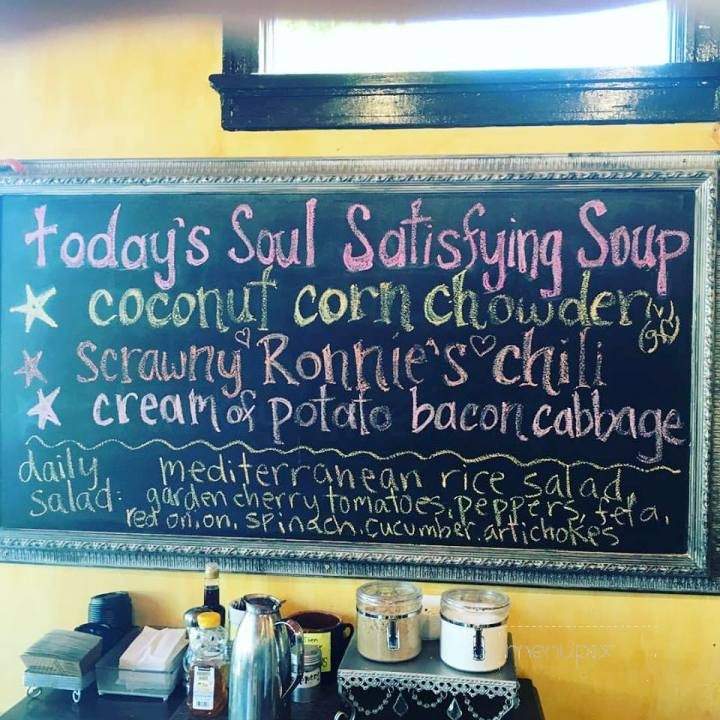 today's Soul Satisfying Soup
coconut corn chowder v GF
scrawny Ronnie's chili
cream of potato bacon cabbage
daily salad:
mediterranean rice salad,
garden cherry tomatoes, peppers, feta,
red onion, spinach, cucumber, artichokes
menupix